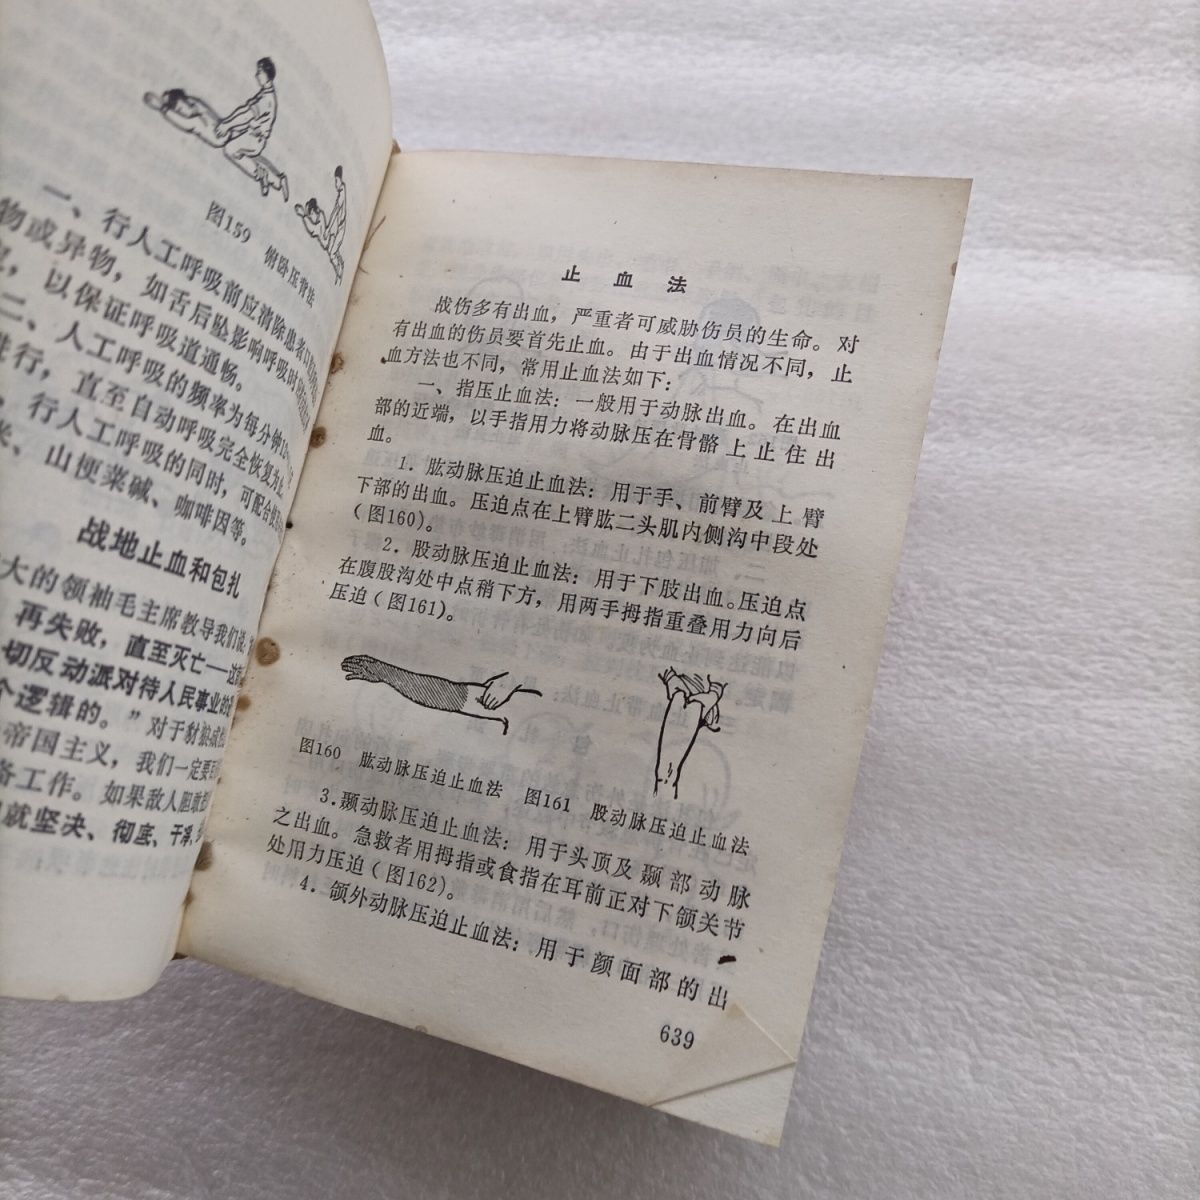 图159 俯卧压背法
一、行人工呼吸前应清除患者口
物或异物，如舌后坠影响呼吸时
，以保证呼吸道通畅。
二、人工呼吸的频率为每分钟
进行，直至自动呼吸完全恢复为止
，行人工呼吸的同时，可配合
米、山梗菜碱、咖啡因等。
战地止血和包扎
大的领袖毛主席教导我们说：
再失败，直至灭亡——这
切反动派对待人民事业的
个逻辑的。”对于豺狼成
帝国主义，我们一定要
备工作。如果敌人胆敢
就坚决、彻底、干净、
止血法
战伤多有出血，严重者可威胁伤员的生命。对
有出血的伤员要首先止血。由于出血情况不同，止
血方法也不同，常用止血法如下：
一、指压止血法：一般用于动脉出血。在出血
部的近端，以手指用力将动脉压在骨骼上止住出
血。
1．肱动脉压迫止血法：用于手、前臂及上臂
下部的出血。压迫点在上臂肱二头肌内侧沟中段处
（图160）。
2．股动脉压迫止血法：用于下肢出血。压迫点
在腹股沟处中点稍下方，用两手拇指重叠用力向后
压迫（图161）。
图160 肱动脉压迫止血法 图161 股动脉压迫止血法
3．颞动脉压迫止血法：用于头顶及颞部动脉
之出血。急救者用拇指或食指在耳前正对下颌关节
处用力压迫（图162）。
4．颌外动脉压迫止血法：用于颜面部的出
639